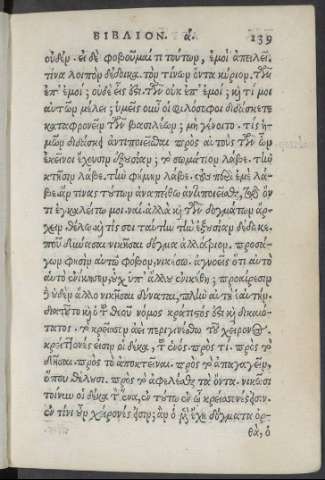 ΒΙΒΛΙΟΝ. α. 139
οὐδέν. εἰ δὲ φοβοῦμαί τι τούτων, ἐμοὶ ἀπειλεῖ.
τίνα λοιπὸν δέδοικα. τὸν τίνων ὄντα κύριον. τῶν
ἐπ' ἐμοί; οὐδὲ εἷς ἐστι. τῶν οὐκ ἐπ' ἐμοί; καὶ τί μοι
αὐτῶν μέλει; ὑμεῖς οὖν οἱ φιλόσοφοι διδάσκετε
καταφρονεῖν τῶν βασιλέων; μὴ γένοιτο. τίς ἡ-
μῶν διδάσκει ἀντιποιεῖσθαι πρὸς αὐτοὺς ὧν
ἐκεῖνοι ἔχουσιν ἐξουσίαν; τὸ σωμάτιον λάβε. τὴν
κτῆσιν λάβε. τὴν φήμην λάβε. τοὺς περὶ ἐμὲ λά-
βε. ἄν τινας τούτων ἀναπείθω ἀντιποιεῖσθαι, τῷ ὄν
τι ἐγκαλείτω μοι. ναί. ἀλλὰ καὶ τῶν δογμάτων ἄρ-
χειν θέλω. καὶ τίς σοι ταύτην τὴν ἐξουσίαν δέδωκε.
ποῦ δύνασαι νικῆσαι δόγμα ἀλλότριον. προσά-
γων φησὶν αὐτῷ φόβον, νικήσω. ἀγνοεῖς ὅτι αὐτὸ
αὑτὸ ἐνίκησεν, οὐχ ὑπ' ἄλλου ἐνικήθη; προαίρεσιν
δὲ οὐδὲν ἄλλο νικῆσαι δύναται, πλὴν αὐτὴ ἑαυτήν.
διὰ τοῦτο καὶ ὁ τοῦ θεοῦ νόμος κράτιστός ἐστι καὶ δικαιό-
τατος. τὸ κρεῖσσον ἀεὶ περιγινέσθω τοῦ χείρονος.
κρείττονές εἰσιν οἱ δέκα, τοῦ ἑνός. πρὸς τί. πρὸς τὸ
δῆσαι. πρὸς τὸ ἀποκτεῖναι. πρὸς τὸ ἀπαγαγεῖν,
ὅπου θέλουσι. πρὸς τὸ ἀφελέσθαι τὰ ὄντα. νικῶσι
τοίνυν οἱ δέκα τὸν ἕνα, ἐν τούτῳ ἐν ᾧ κρείσσονές εἰσιν.
ἐν τίνι οὖν χείρονές εἰσιν; ἂν ὁ μὲν ἔχῃ δόγματα ὀρ-
θὰ, ὁ